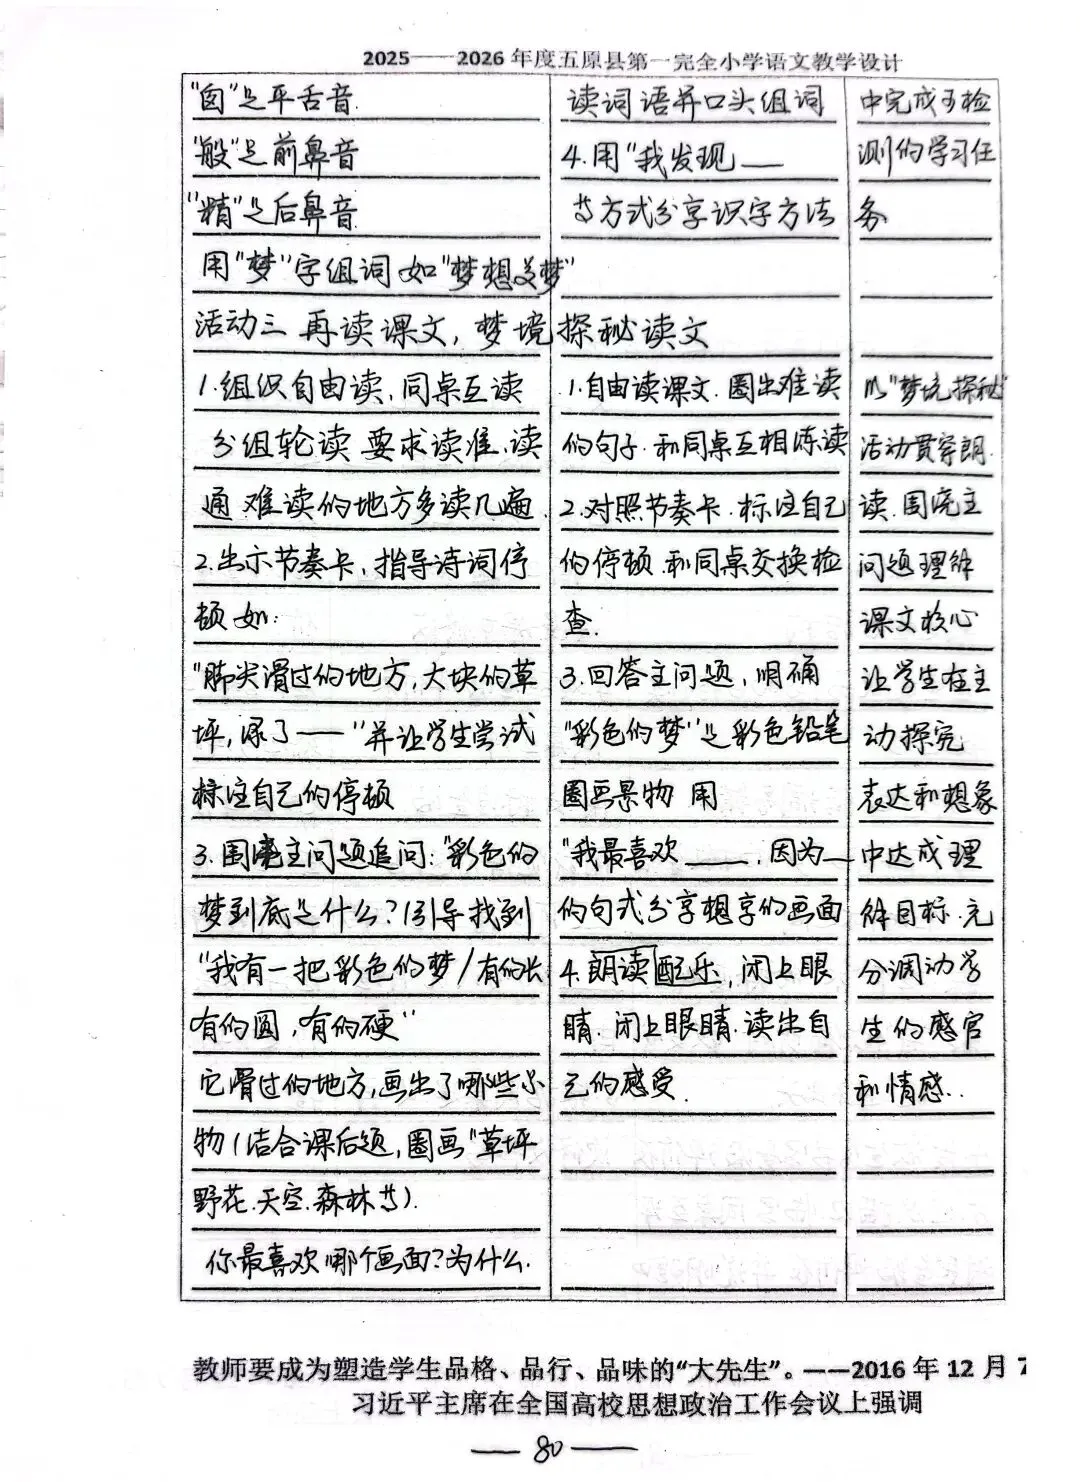 2025——2026年度五原县第一完全小学语文教学设计
"囱"是平舌音.
"般"是前鼻音
"精"是后鼻音
用"梦"字组词 如"梦想 美梦"
活动三 再读课文，梦境探秘读文
1.组织自由读，同桌互读
分组轮读 要求读准、读
通 难读的地方多读几遍.
2.出示节奏卡，指导诗词停
顿 如：
"脚尖滑过的地方，大块的草
坪，绿了——"并让学生尝试
标注自己的停顿
3.围绕主问题追问："彩色的
梦到底是什么？（引导找到
"我有一把彩色的梦/有的长
有的圆，有的硬"
它滑过的地方，画出了哪些小
物（结合课后题，圈画"草坪
野花.天空.森林等）.
你最喜欢哪个画面？为什么.
读词语并口头组词
4.用"我发现——
等方式分享识字方法
1.自由读课文.圈出难读
的句子.和同桌互相练读
2.对照节奏卡.标注自己
的停顿.和同桌交换检
查.
3.回答主问题，明确
"彩色的梦"是彩色铅笔
圈画景物 用
"我最喜欢____，因为_
的句式分享想享的画面
4.朗读配乐，闭上眼
睛.闭上眼睛.读出自
己的感受.
中完成可检
测的学习任
务
以"梦境探秘"
活动贯穿朗.
读.围绕主
问题理解
课文核心
让学生在主
动探究
表达和想象
中达成理
解目标.充
分调动学
生的感官
和情感..
教师要成为塑造学生品格、品行、品味的"大先生"。——2016年12月7
习近平主席在全国高校思想政治工作会议上强调
— 80 —